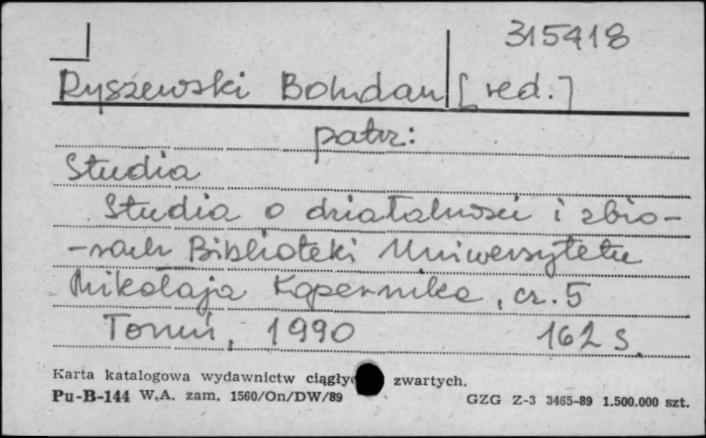 315418
Ryszewski Bohdan [red.]
patrz:
Studia
Studia o działalności i zbio-
-rach Biblioteki Uniwersytetu
Mikołaja Kopernika, cz. 5
Toruń, 1990 162 s.
Karta katalogowa wydawnictw ciągły zwartych.
Pu-B-144 W.A. zam. 1560/On/DW/89 GZG Z-3 3465-89 1.500.000 szt.